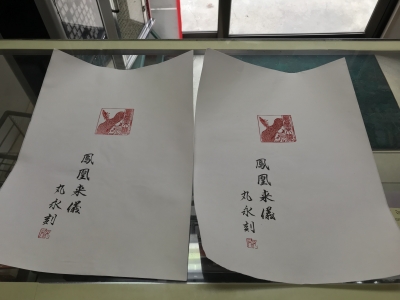 鳳凰来儀
丸永刻
鳳凰来儀
丸永刻